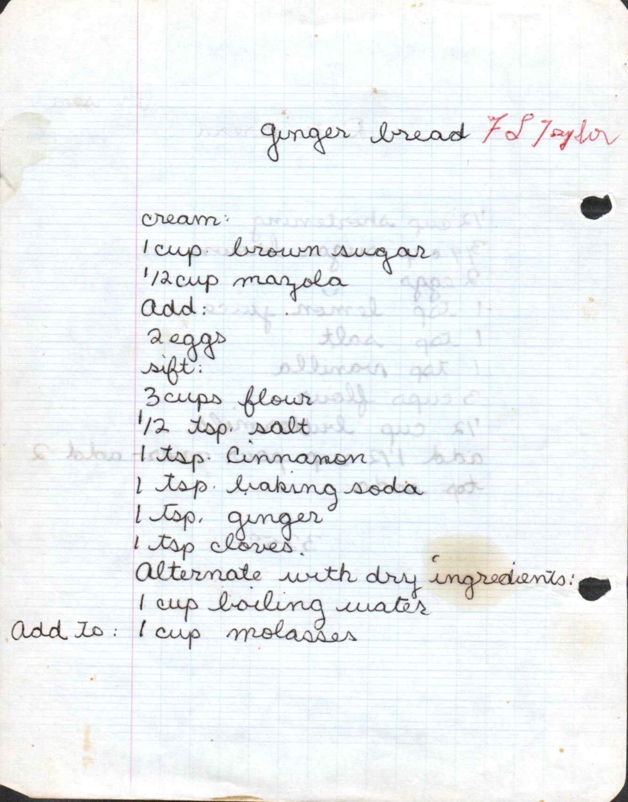 ginger bread F L Taylor
cream:
1 cup brown sugar
1/2 cup mazola
Add:
2 eggs
sift:
3 cups flour
1/2 tsp. salt
1 tsp. Cinnamon
1 tsp. baking soda
1 tsp. ginger
1 tsp cloves.
Alternate with dry ingredients:
1 cup boiling water
Add to: 1 cup molasses